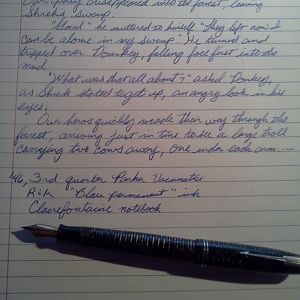 Our party disappeared into the forest, leaving
Shrek's swamp.
"Good" he muttered to himself "They left now I
can be alone in my swamp" He turned and
tripped over Donkey, falling face first into the
mud.
"What was that all about?" asked Donkey,
as Shrek started to get up, an angry look in his
eyes.
Our heros quickly made their way through the
forest, arriving just in time to see a large troll
carrying two cows away, one under each arm....
'46, 3rd quarter Parker Vacumatic
R & K "Blau permanent" ink
Clairefontaine notebook